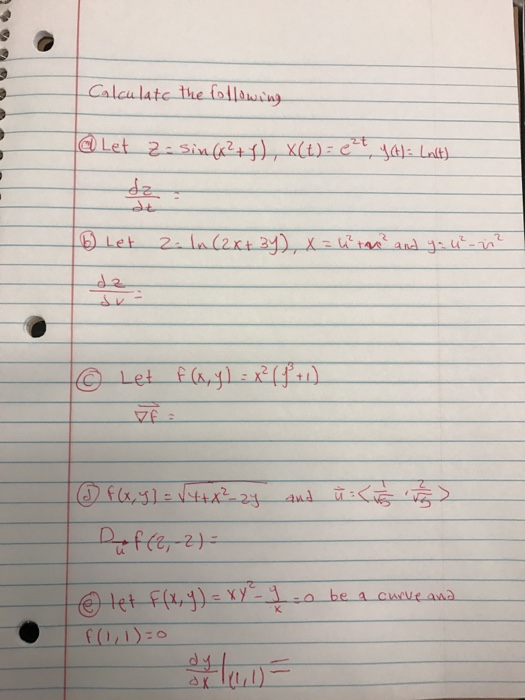 Calculate the following
ⓐ Let z = sin(x²+y), x(t) = e²ᵗ, y(t) = ln(t)
dz/dt =
ⓑ Let z = ln(2x+3y), x = u²+v² and y = u²-v²
dz/dv =
ⓒ Let f(x,y) = x²(y³+1)
∇f =
ⓓ f(x,y) = √4+x²-2y and u = <1/√5, 2/√5>
D_u f(2,-2) =
ⓔ let F(x,y) = xy² - y/x = 0 be a curve and
f(1,1) = 0
dy/dx|(1,1) =